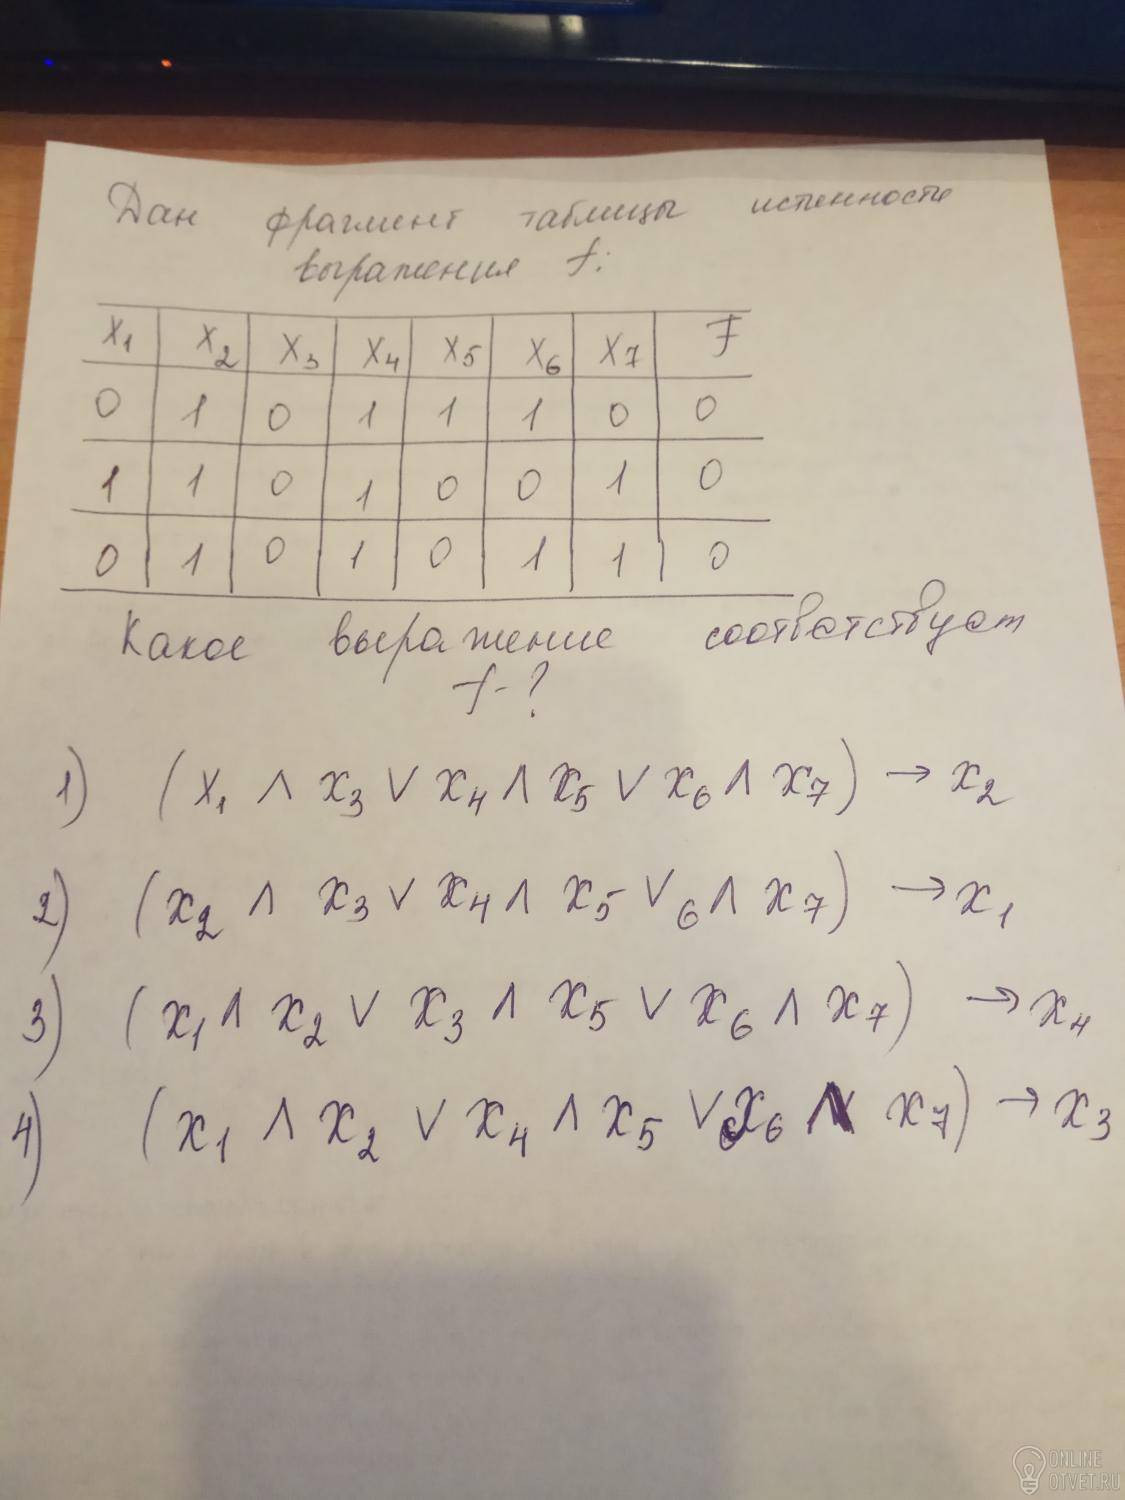 Дан фрагмент таблицы истенности
выражения f:
X1 X2 X3 X4 X5 X6 X7 F
0 1 0 1 1 1 0 0
1 1 0 1 0 0 1 0
0 1 0 1 0 1 1 0
Какое выражение соответствует
f-?
1) (x1 ∧ x3 ∨ x4 ∧ x5 ∨ x6 ∧ x7) → x2
2) (x2 ∧ x3 ∨ x4 ∧ x5 ∨ 6 ∧ x7) → x1
3) (x1 ∧ x2 ∨ x3 ∧ x5 ∨ x6 ∧ x7) → x4
4) (x1 ∧ x2 ∨ x4 ∧ x5 ∨ x6 ∧ x7) → x3
ONLINE
OTVET.RU